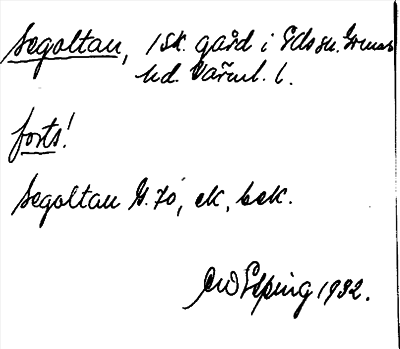 Segoltan, 1 sk. gård i Eds sn. Grums
hd. Värml. l.
forts!
Segoltan G. 70, ek, bek.
Elping 1932.